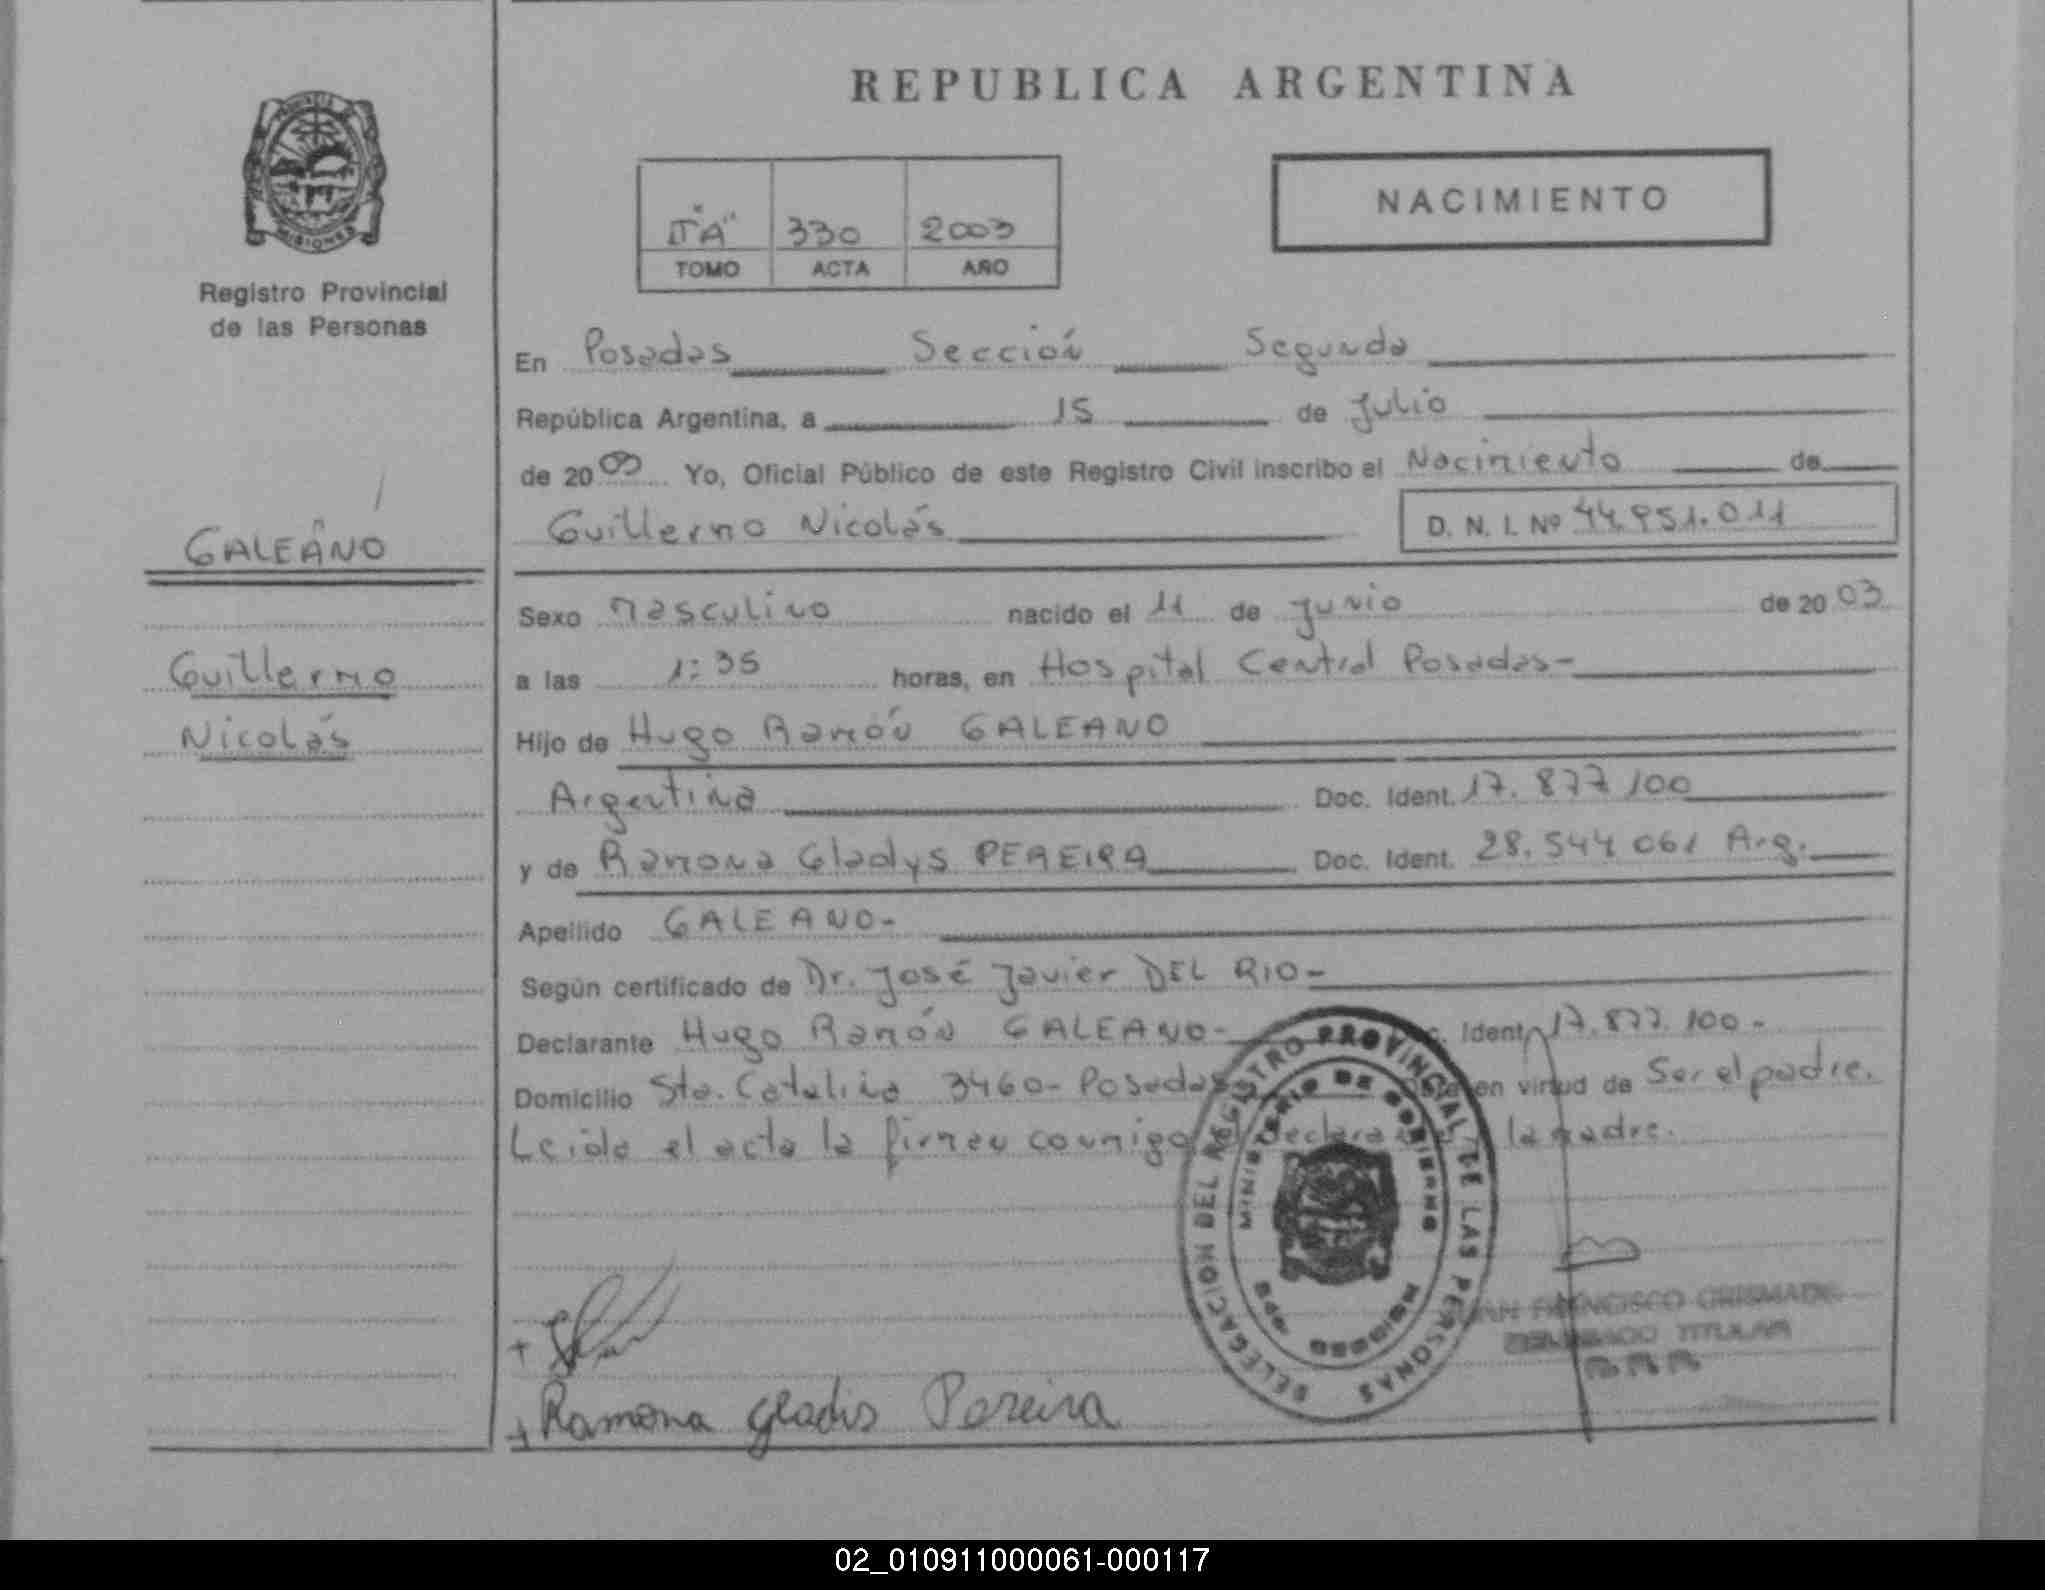 REPUBLICA ARGENTINA
PROVINCIA
MISIONES
Registro Provincial
de las Personas
"A" 330 2003
TOMO ACTA AÑO
NACIMIENTO
En Posadas Sección Segunda
República Argentina, a 15 de Julio
de 2003 Yo, Oficial Público de este Registro Civil inscribo el Nacimiento de
Guillermo Nicolás D. N. I. Nº 44.951.011
GALEANO
Guillermo
Nicolás
Sexo Masculino nacido el 11 de Junio de 2003
a las 1:35 horas, en Hospital Central Posadas-
Hijo de Hugo Ramón GALEANO
Argentina Doc. Ident. 17.877.100
y de Ramona Gladys PEREIRA Doc. Ident. 28.544.061 Arg.
Apellido GALEANO-
Según certificado de Dr. José Javier DEL RIO-
Declarante Hugo Ramón GALEANO- Ident. 17.877.100-
Domicilio Sta. Catalina 3460- Posadas en virtud de Ser el padre.
Leida el acta la firman conmigo la madre.
DELEGACION DEL REGISTRO PROVINCIAL DE LAS PERSONAS
MINISTERIO DE GOBIERNO
MISIONES
FRANCISCO
DELEGADO TITULAR
+
+ Ramona Gladis Pereira
02_010911000061-000117